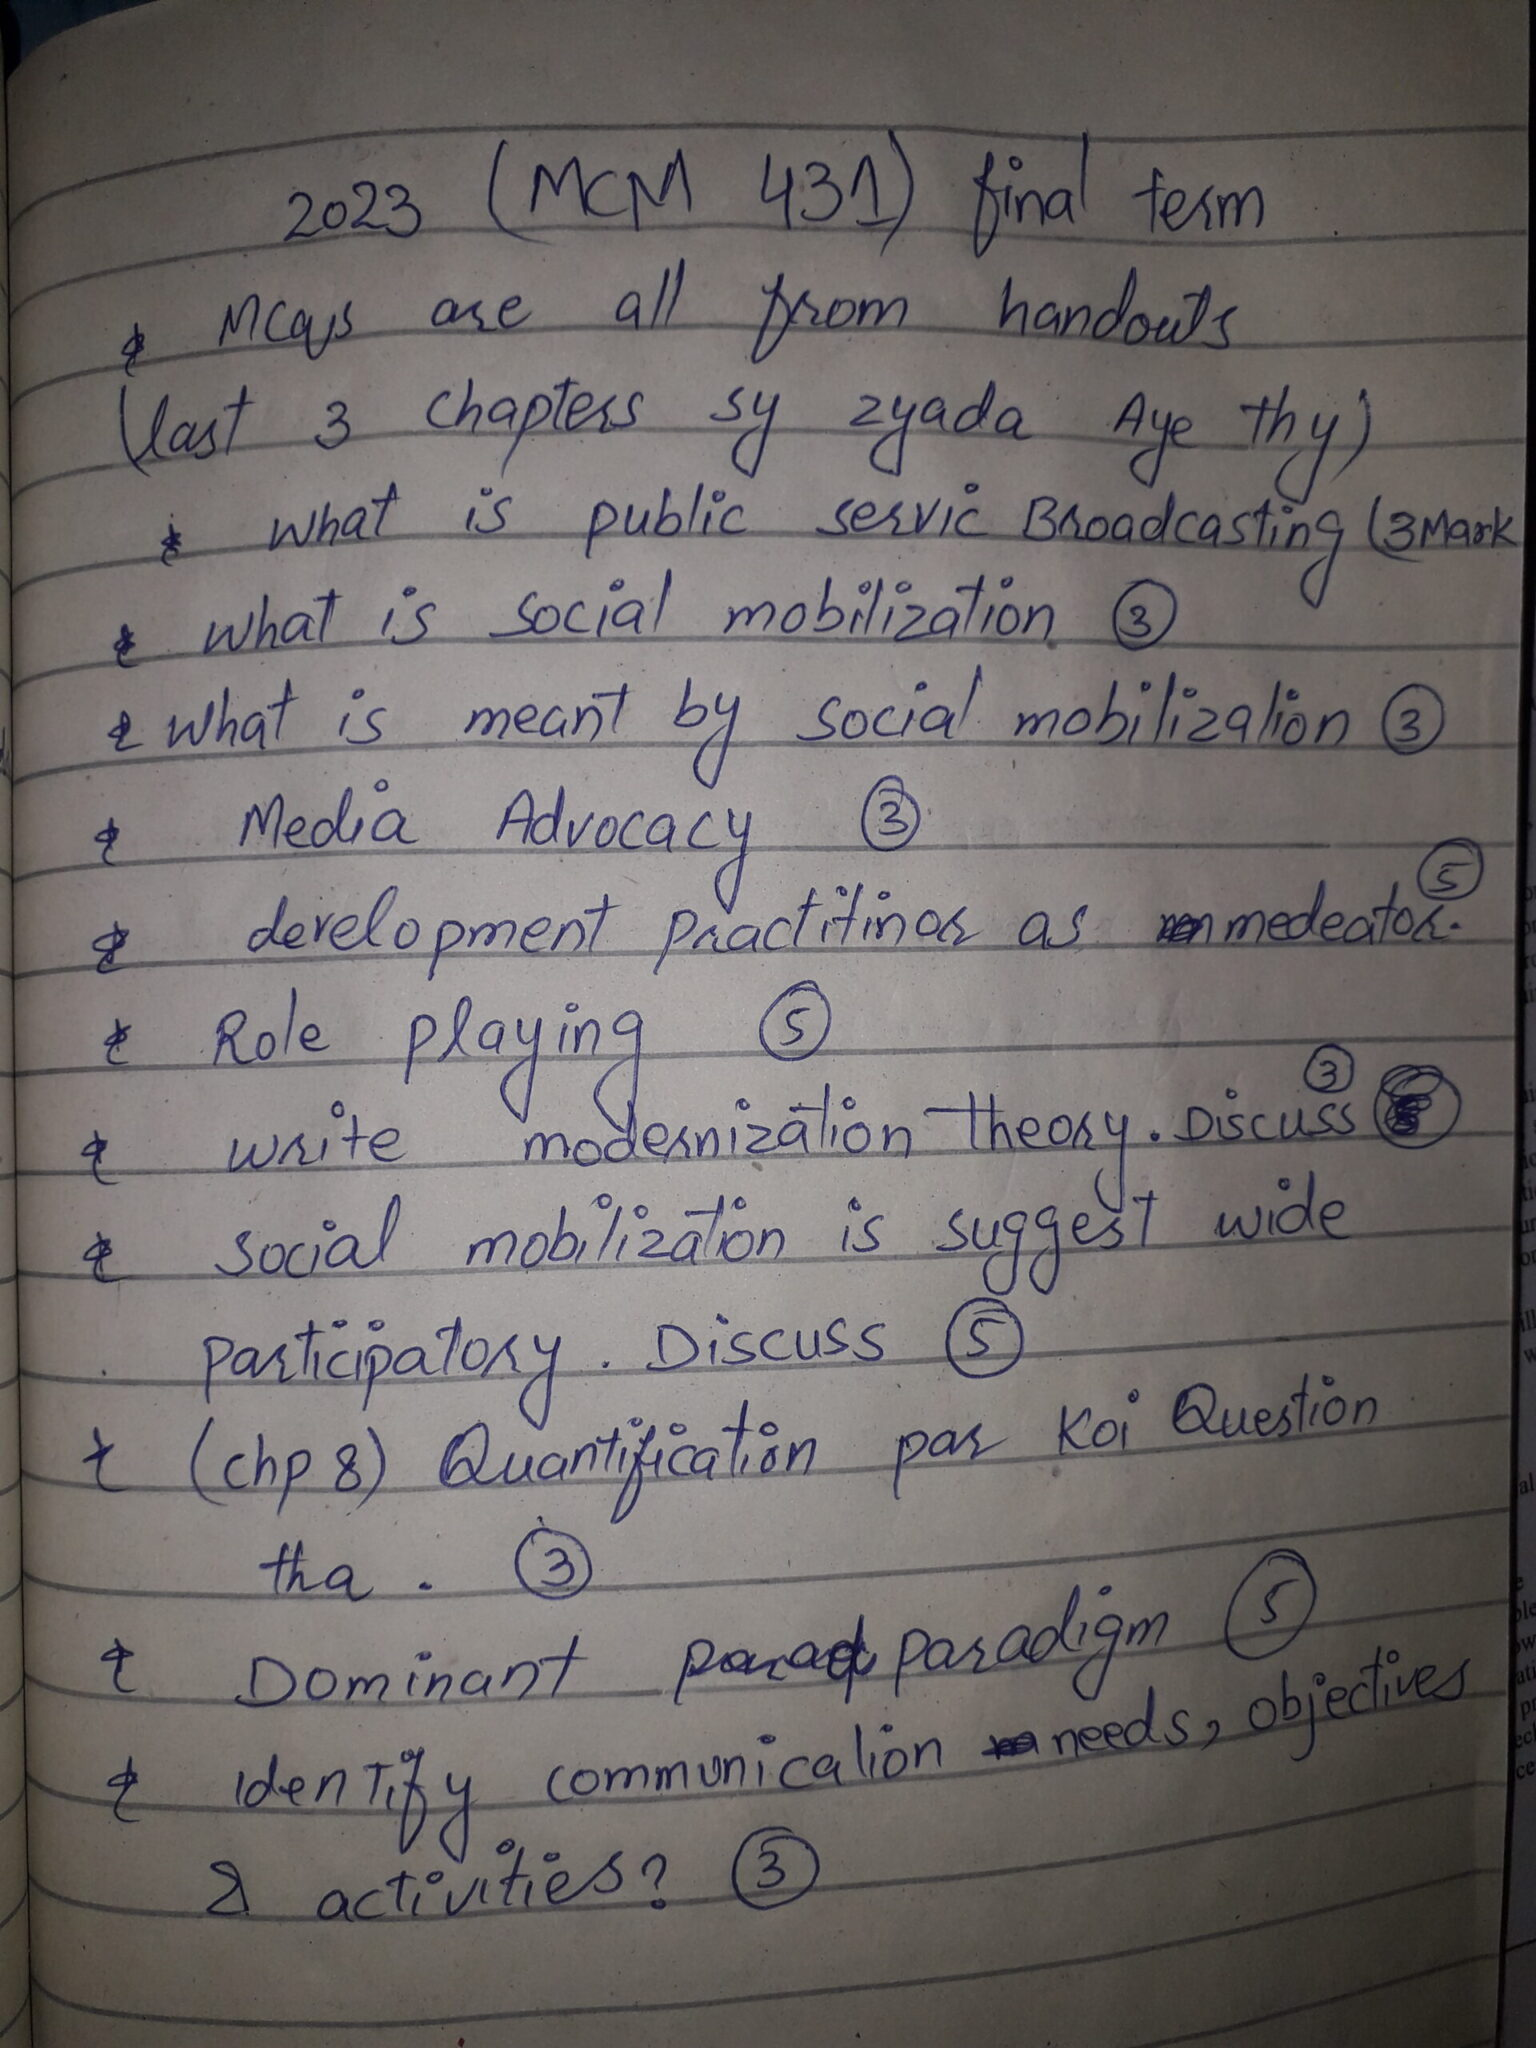 2023 (MCM 431) final term
* MCqs are all from handouts
(last 3 chapters sy zyada Aye thy)
* what is public servic Broadcasting (3Mark
* what is social mobilization ③
* what is meant by social mobilization ③
* Media Advocacy ③
* development practitinor as medeator. ⑤
* Role playing ⑤
* write modernization theory. Discuss ③
* social mobilization is suggest wide
participatory. Discuss ⑤
* (chp 8) Quantification par koi Question
tha. ③
* Dominant paradigm ⑤
* identify communication needs, objectives
& activities? ③